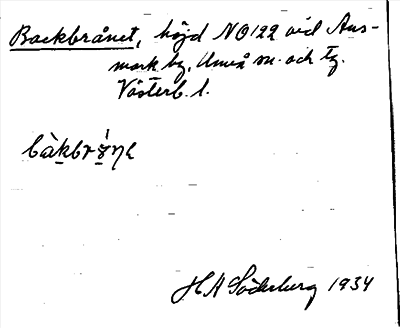 Backbrånet, höjd NO122 vid Ans-
mark by, Umeå sn. och tg.
Västerb. l.
bàkbrå̀ɳe
H A Söderberg 1934